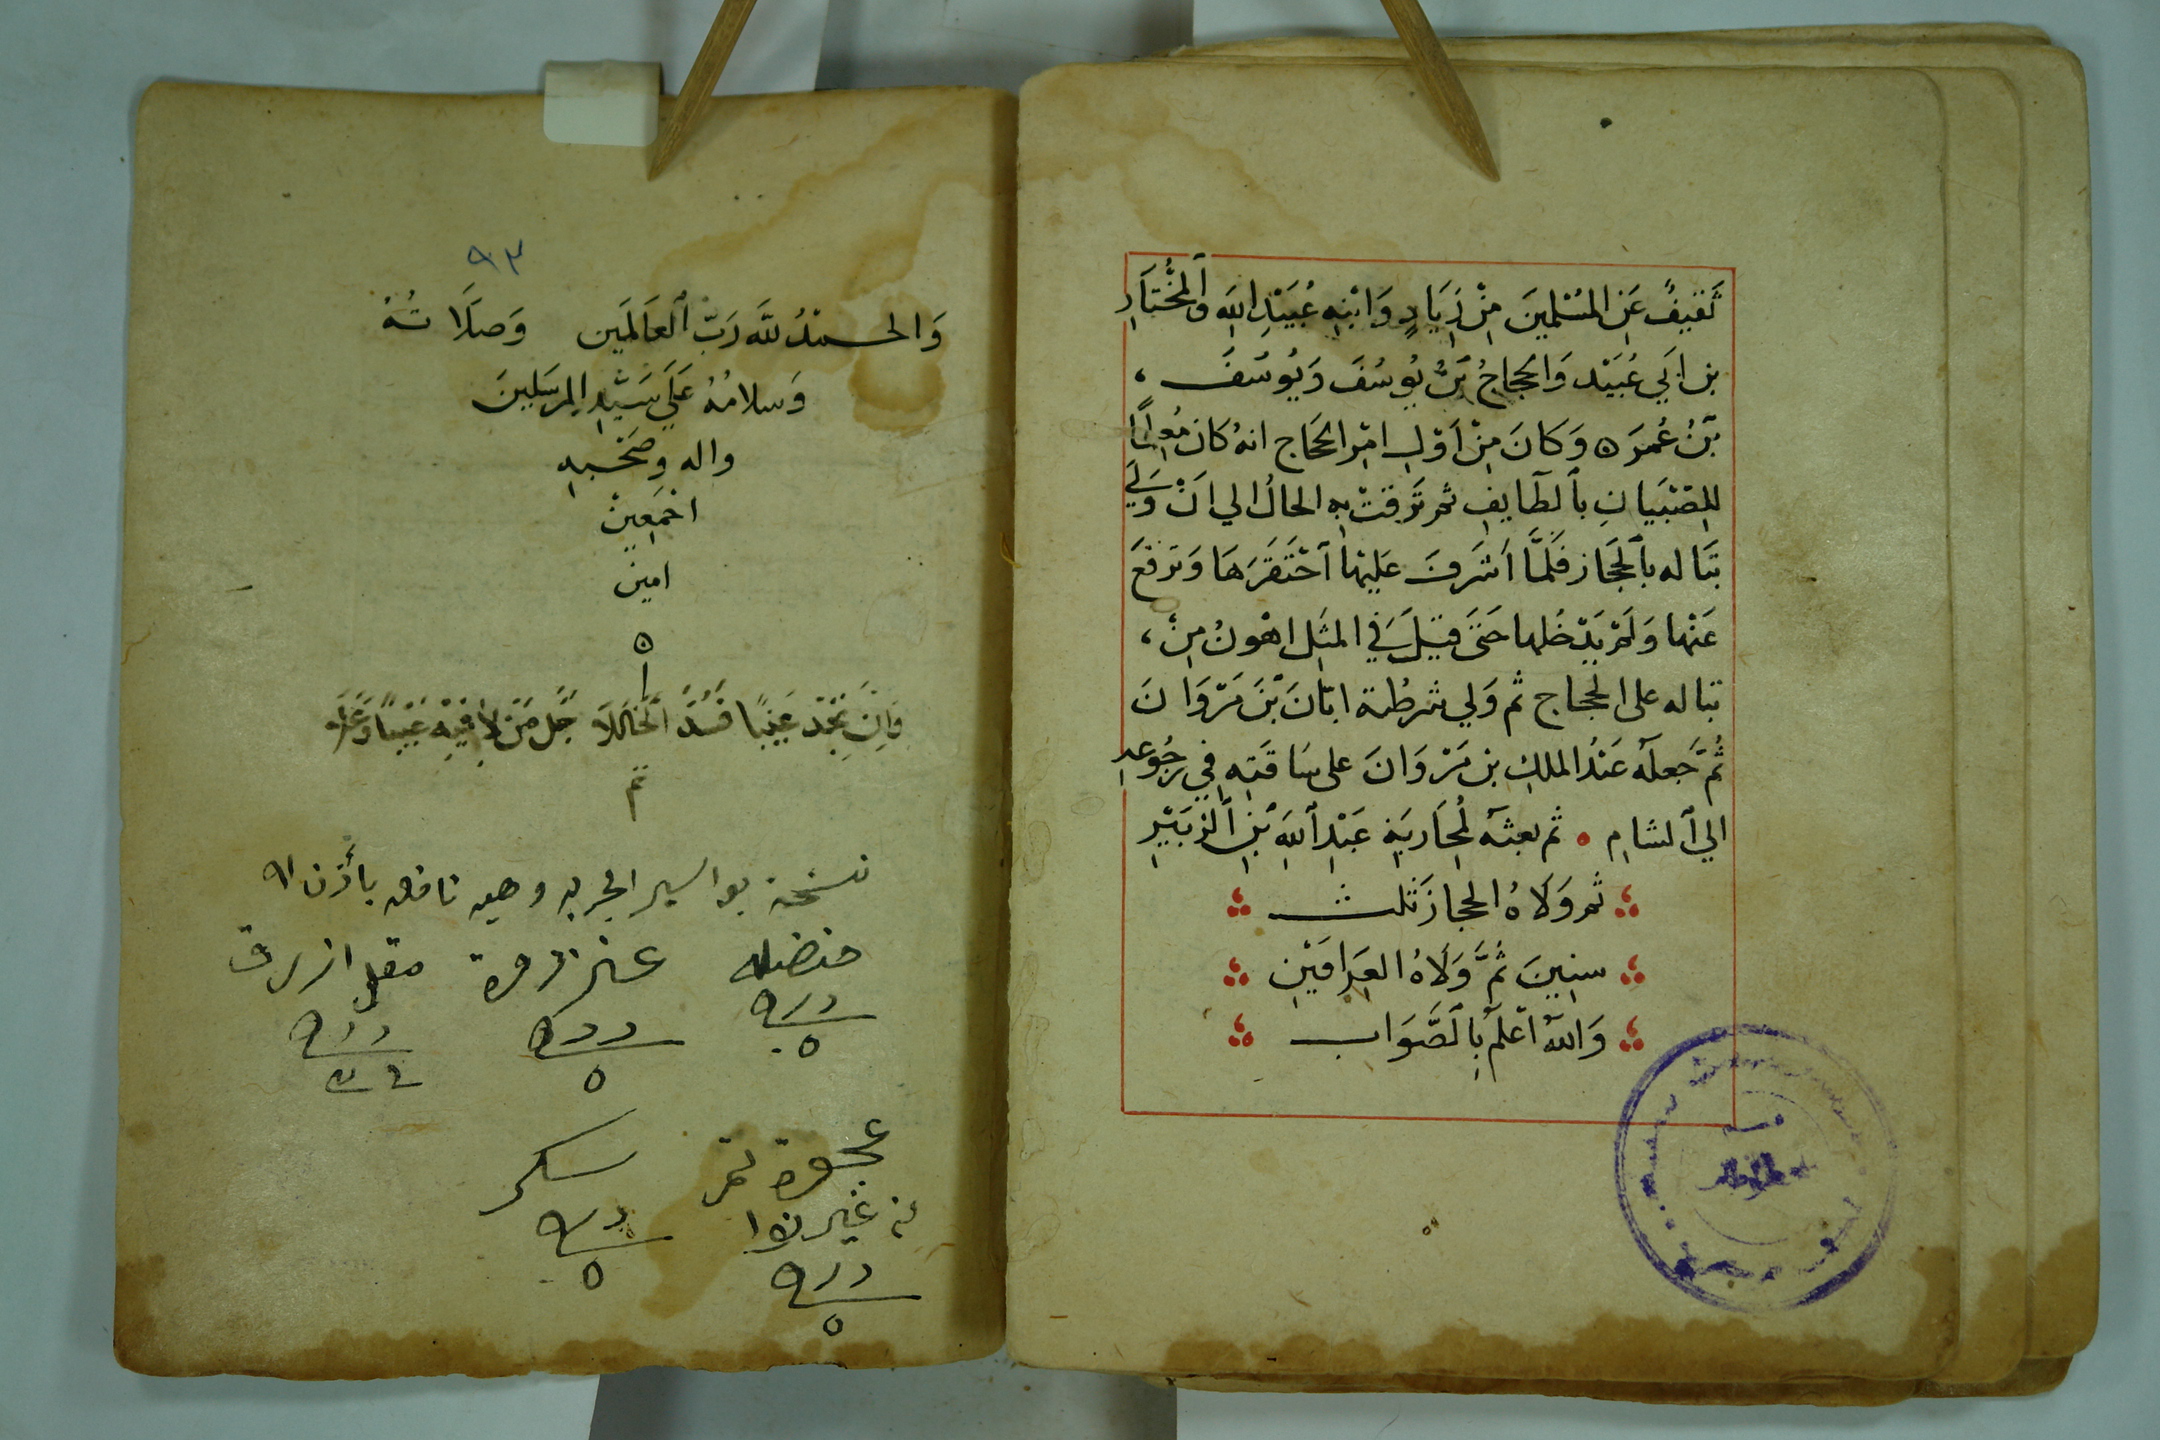 ثَقيفُ عَنِ المُسْلمينَ مِنْ زِيَادٍ وَابْنِهِ عُبَيْدِ اللهِ وَالمُخْتَارِ
بن ابَي عُبَيْد وَالحجاجُ بْنُ يُوسُفَ وَيُوسُفَ ،
بْنُ عُمَرَ ه وَكانَ مِنْ اَوَّلِ امْرِ الحَجاج انهُ كانَ مُعلِمًا
لِلِصّبْيَانِ بالطَّايِفِ ثم تَرَقتْ بِهِ الحالُ الي انْ وَلِيَ
تَبَاله بالحجَاز فَلَمَّا اَشرَفَ عَليْها احْتَقَرَهَا وَترَفعَ
عَنْها وَلَمْ يَدْخُلها حَتَى قِيْلَ في المثِل اهْونُ مِنْ ،
تباله على الحجاج ثم وَلي شرطة ابَانَ بْنَ مَرْوَانَ
ثُمَّ جَعلَهُ عَبْدُ الملك بن مَرْوَانَ على سَاقَتِهِ في رجُوعهِ
الي الشامِ ٥ ثم بعثَهُ لمُحَاربَةِ عَبْدِ اللهِ بْنِ الزُّبَيْرِ
ثم وَلَاهُ الحجازَ ثلث
سنِينَ ثُمَّ وَلَاهُ العِرَاقَيْنِ
وَاللهُ اَعْلَمُ بِالصَّوَاب
٩٣
وَالحمْدُ للهِ رَبّ العَالمَين وَصَلَاتُهُ
وَسلامُهُ عَلَي سَيّدِ المرسَلِينَ
واله وصَحْبهِ
اجْمَعِينَ
امين
ه
وَاِن تَجِدْ عَيْبًا فَسُدَّ الخَلَلاَ جَلَّ مَنْ لا فيْهِ عَيْبًا وَعَلا
تم
نسخة بواسير الجربه وهيه نافعه بأذن الله
حنضله عنزروة مقل ازرق
عجوة تمر سكر
من غير نوا